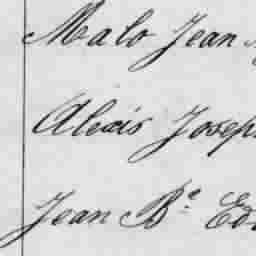 Malo Jean
Alexis Joseph
Jean Bte Ed